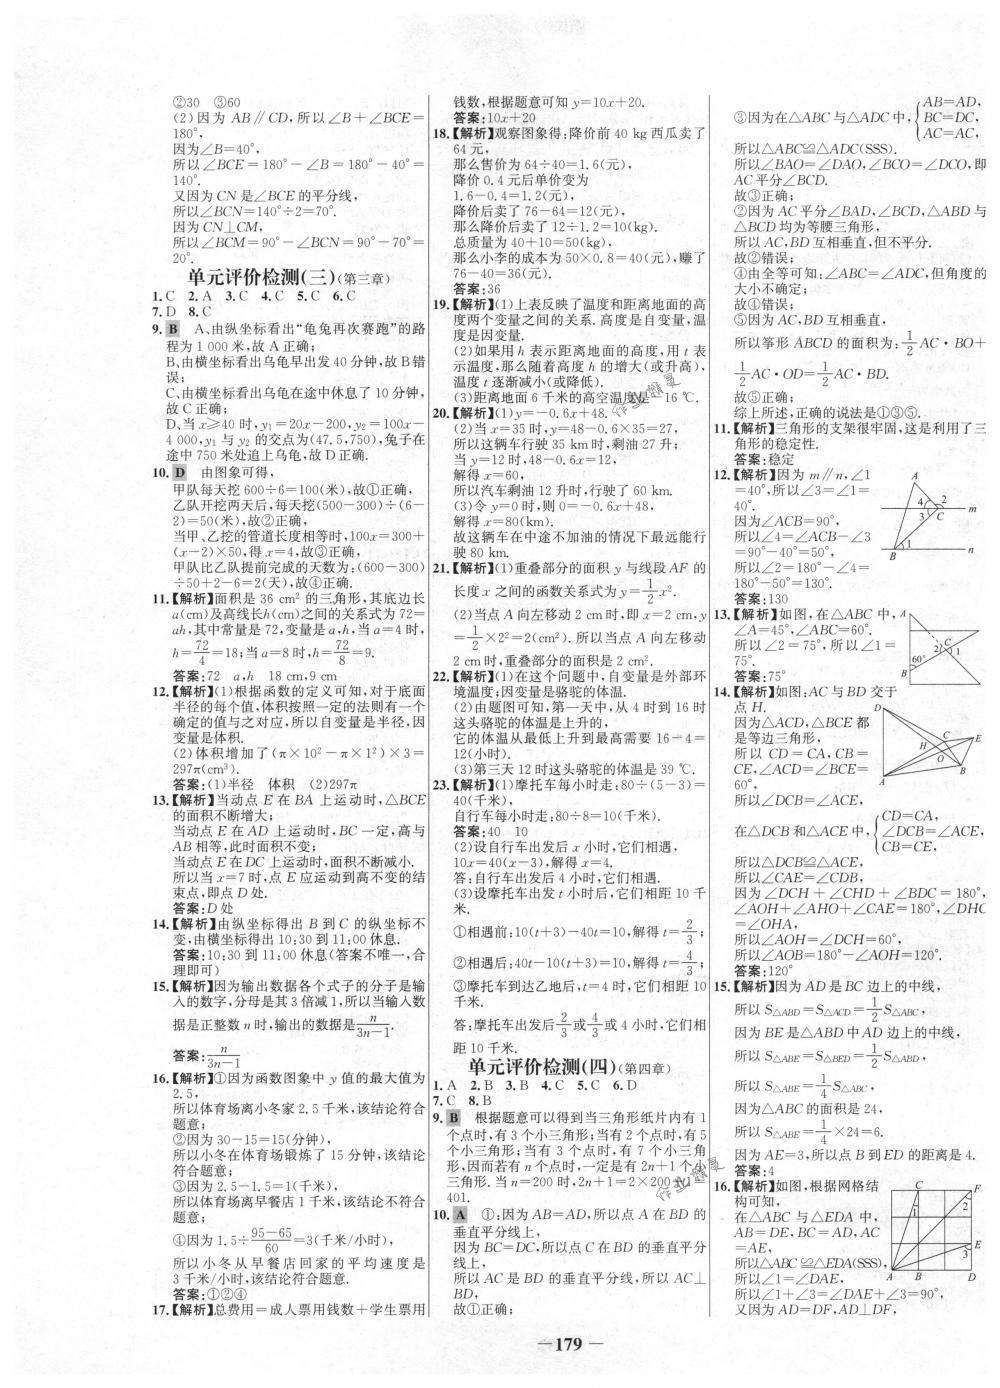 ②30　③60
(2)因为 AB∥CD,所以∠B+∠BCE=
180°,
因为∠B=40°,
所以∠BCE=180°-∠B=180°-40°=
140°.
又因为 CN 是∠BCE 的平分线,
所以∠BCN=140°÷2=70°.
因为 CN⊥CM,
所以∠BCM=90°-∠BCN=90°-70°=
20°.
单元评价检测(三)(第三章)
1.C　2.A　3.C　4.C　5.C　6.C
7.D　8.C
9.B　A、由纵坐标看出“龟兔再次赛跑”的路
程为 1 000 米,故 A 正确;
B、由横坐标看出乌龟早出发 40 分钟,故 B 错
误;
C、由横坐标看出乌龟在途中休息了 10 分钟,
故 C 正确;
D、当 x≥40 时,y₁=20x-200,y₂=100x-
4 000,y₁ 与 y₂ 的交点为(47.5,750),兔子在
途中 750 米处追上乌龟,故 D 正确.
10.D　由图象可得,
甲队每天挖 600÷6=100(米),故①正确,
乙队开挖两天后,每天挖(500-300)÷(6-
2)=50(米),故②正确,
当甲、乙挖的管道长度相等时,100x=300+
(x-2)×50,得 x=4,故③正确,
甲队比乙队提前完成的天数为:(600-300)
÷50+2-6=2(天),故④正确.
11.【解析】面积是 36 cm² 的三角形,其底边长
a(cm)及高线长h(cm)之间的关系式为 72=
ah,其中常量是 72,变量是 a,h,当 a=4 时,
h=72/4=18;当 a=8 时,h=72/8=9.
答案:72　a,h　18 cm,9 cm
12.【解析】(1)根据函数的定义可知,对于底面
半径的每个值,体积按照一定的法则有一个
确定的值与之对应,所以自变量是半径,因
变量是体积.
(2)体积增加了(π×10²-π×1²)×3=
297π(cm³).
答案:(1)半径　体积　(2)297π
13.【解析】当动点 E 在 BA 上运动时,△BCE
的面积不断增大;
当动点 E 在 AD 上运动时,BC 一定,高与
AB 相等,此时面积不变;
当动点 E 在 DC 上运动时,面积不断减小.
所以当 x=7 时,点 E 应运动到高不变的结
束点,即点 D 处.
答案:D 处
14.【解析】由纵坐标得出 B 到 C 的纵坐标不
变,由横坐标得出 10:30 到 11:00 休息.
答案:10:30 到 11:00 休息(答案不唯一,合
理即可)
15.【解析】因为输出数据各个式子的分子是输
入的数字,分母是其 3 倍减 1,所以当输入数
据是正整数 n 时,输出的数据是n/(3n-1).
答案:n/(3n-1)
16.【解析】①因为函数图象中 y 值的最大值为
2.5,
所以体育场离小冬家 2.5 千米,该结论符合
题意;
②因为 30-15=15(分钟),
所以小冬在体育场锻炼了 15 分钟,该结论
符合题意;
③因为 2.5-1.5=1(千米),
所以体育场离早餐店 1 千米,该结论不符合
题意;
④因为 1.5÷(95-65)/60=3(千米/小时),
所以小冬从早餐店回家的平均速度是
3 千米/小时,该结论符合题意.
答案:①②④
17.【解析】总费用=成人票用钱数+学生票用
钱数,根据题意可知 y=10x+20.
答案:10x+20
18.【解析】观察图象得:降价前 40 kg 西瓜卖了
64 元,
那么售价为 64÷40=1.6(元),
降价 0.4 元后单价变为
1.6-0.4=1.2(元),
降价后卖了 76-64=12(元),
那么降价后卖了 12÷1.2=10(kg).
总质量为 40+10=50(kg),
那么小李的成本为 50×0.8=40(元),赚了
76-40=36(元).
答案:36
19.【解析】(1)上表反映了温度和距离地面的高
度两个变量之间的关系.高度是自变量,温
度是因变量.
(2)如果用 h 表示距离地面的高度,用 t 表
示温度,那么随着高度 h 的增大(或升高),
温度 t 逐渐减小(或降低).
(3)距离地面 6 千米的高空温度是-16 ℃.
20.【解析】(1)y=-0.6x+48.
(2)当 x=35 时,y=48-0.6x=27,
所以这辆车行驶 35 km 时,剩油 27 升;
当 y=12 时,48-0.6x=12,
解得 x=60,
所以汽车剩油 12 升时,行驶了 60 km.
(3)令 y=0 时,则 0=-0.6x+48,
解得 x=80(km).
故这辆车在中途不加油的情况下最远能行
驶 80 km.
21.【解析】(1)重叠部分的面积 y 与线段 AF 的
长度 x 之间的函数关系式为 y=1/2x².
(2)当点 A 向左移动 2 cm 时,即 x=2 cm,y
=1/2×2²=2(cm²).所以当点 A 向左移动
2 cm 时,重叠部分的面积是 2 cm².
22.【解析】(1)在这个问题中,自变量是外部环
境温度;因变量是骆驼的体温.
(2)由题图可知,第一天中,从 4 时到 16 时
这头骆驼的体温是上升的,
它的体温从最低上升到最高需要 16-4=
12(小时).
(3)第三天 12 时这头骆驼的体温是 39 ℃.
23.【解析】(1)摩托车每小时走:80÷(5-3)=
40(千米),
自行车每小时走:80÷8=10(千米).
答案:40　10
(2)设自行车出发后 x 小时,它们相遇,
10x=40(x-3),解得 x=4.
答:自行车出发后 4 小时,它们相遇.
(3)设摩托车出发 t 小时后,它们相距 10 千
米.
①相遇前:10(t+3)-40t=10,解得 t=2/3;
②相遇后:40t-10(t+3)=10,解得 t=4/3;
③摩托车到达乙地后,t=4 时,它们相距 10
千米.
答:摩托车出发后2/3或4/3或 4 小时,它们相
距 10 千米.
单元评价检测(四)(第四章)
1.A　2.B　3.B　4.C　5.C　6.D
7.C　8.B
9.B　根据题意可以得到当三角形纸片内有 1
个点时,有 3 个小三角形;当有 2 个点时,有 5
个小三角形;当有 3 个点时,有 7 个小三角
形,因而若有 n 个点时,一定是有 2n+1 个小
三角形.当 n=200 时,2n+1=2×200+1=
401.
10.A　①:因为 AB=AD,所以点 A 在 BD 的
垂直平分线上,
因为 BC=DC,所以点 C 在 BD 的垂直平分
线上,
所以 AC 是 BD 的垂直平分线,所以 AC⊥
BD,
故①正确;
③因为在△ABC 与△ADC 中,{AB=AD,
BC=DC,
AC=AC,
所以△ABC≌△ADC(SSS).
所以∠BAO=∠DAO,∠BCO=∠DCO,即
AC 平分∠BCD.
故③正确;
②因为 AC 平分∠BAD,∠BCD,△ABD 与
△BCD 均为等腰三角形,
所以 AC,BD 互相垂直,但不平分.
故②错误;
④由全等可知:∠ABC=∠ADC,但角度的
大小不确定;
故④错误;
⑤因为 AC,BD 互相垂直,
所以筝形 ABCD 的面积为:1/2AC·BO+
1/2AC·OD=1/2AC·BD.
故⑤正确;
综上所述,正确的说法是①③⑤.
11.【解析】三角形的支架很牢固,这是利用了三
角形的稳定性.
答案:稳定
12.【解析】因为 m∥n,∠1
=40°,所以∠3=∠1=
40°.
因为∠ACB=90°,
所以∠4=∠ACB-∠3
=90°-40°=50°,
所以∠2=180°-∠4=
180°-50°=130°.
答案:130
A
4
2
3
C
m
B
1
n
13.【解析】如图,在△ABC 中,
∠A=45°,∠ABC=60°.
所以∠2=75°,所以∠1=
75°.
答案:75°
A
C
2
3
1
60°
B
14.【解析】如图:AC 与 BD 交于
点 H.
因为△ACD,△BCE 都
是等边三角形,
所以 CD=CA,CB=
CE,∠ACD=∠BCE=
60°,
所以∠DCB=∠ACE,
在△DCB 和△ACE 中,{CD=CA,
∠DCB=∠ACE,
CB=CE,
所以△DCB≌△ACE,
所以∠CAE=∠CDB,
因为∠DCH+∠CHD+∠BDC=180°,
∠AOH+∠AHO+∠CAE=180°,∠DHC
=∠OHA,
所以∠AOH=∠DCH=60°,
所以∠AOB=180°-∠AOH=120°.
答案:120°
D
C
E
H
O
B
A
15.【解析】因为 AD 是 BC 边上的中线,
所以 S△ABD=S△ACD=1/2S△ABC,
因为 BE 是△ABD 中 AD 边上的中线,
所以 S△ABE=S△BED=1/2S△ABD,
所以 S△ABE=1/4S△ABC,
因为△ABC 的面积是 24,
所以 S△ABE=1/4×24=6.
因为 AE=3,所以点 B 到 ED 的距离是 4.
答案:4
16.【解析】如图,根据网格结
构可知,
在△ABC 与△EDA 中,
AB=DE,BC=AD,AC
=AE,
所以△ABC≌△EDA(SSS),
所以∠1=∠DAE,
所以∠1+∠3=∠DAE+∠3=90°,
又因为 AD=DF,AD⊥DF,
C
F
1
2
E
3
A
B
D
— 179 —